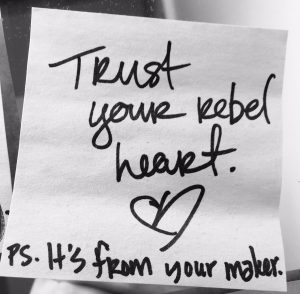 Trust
your rebel
heart.
PS. It's from your maker.